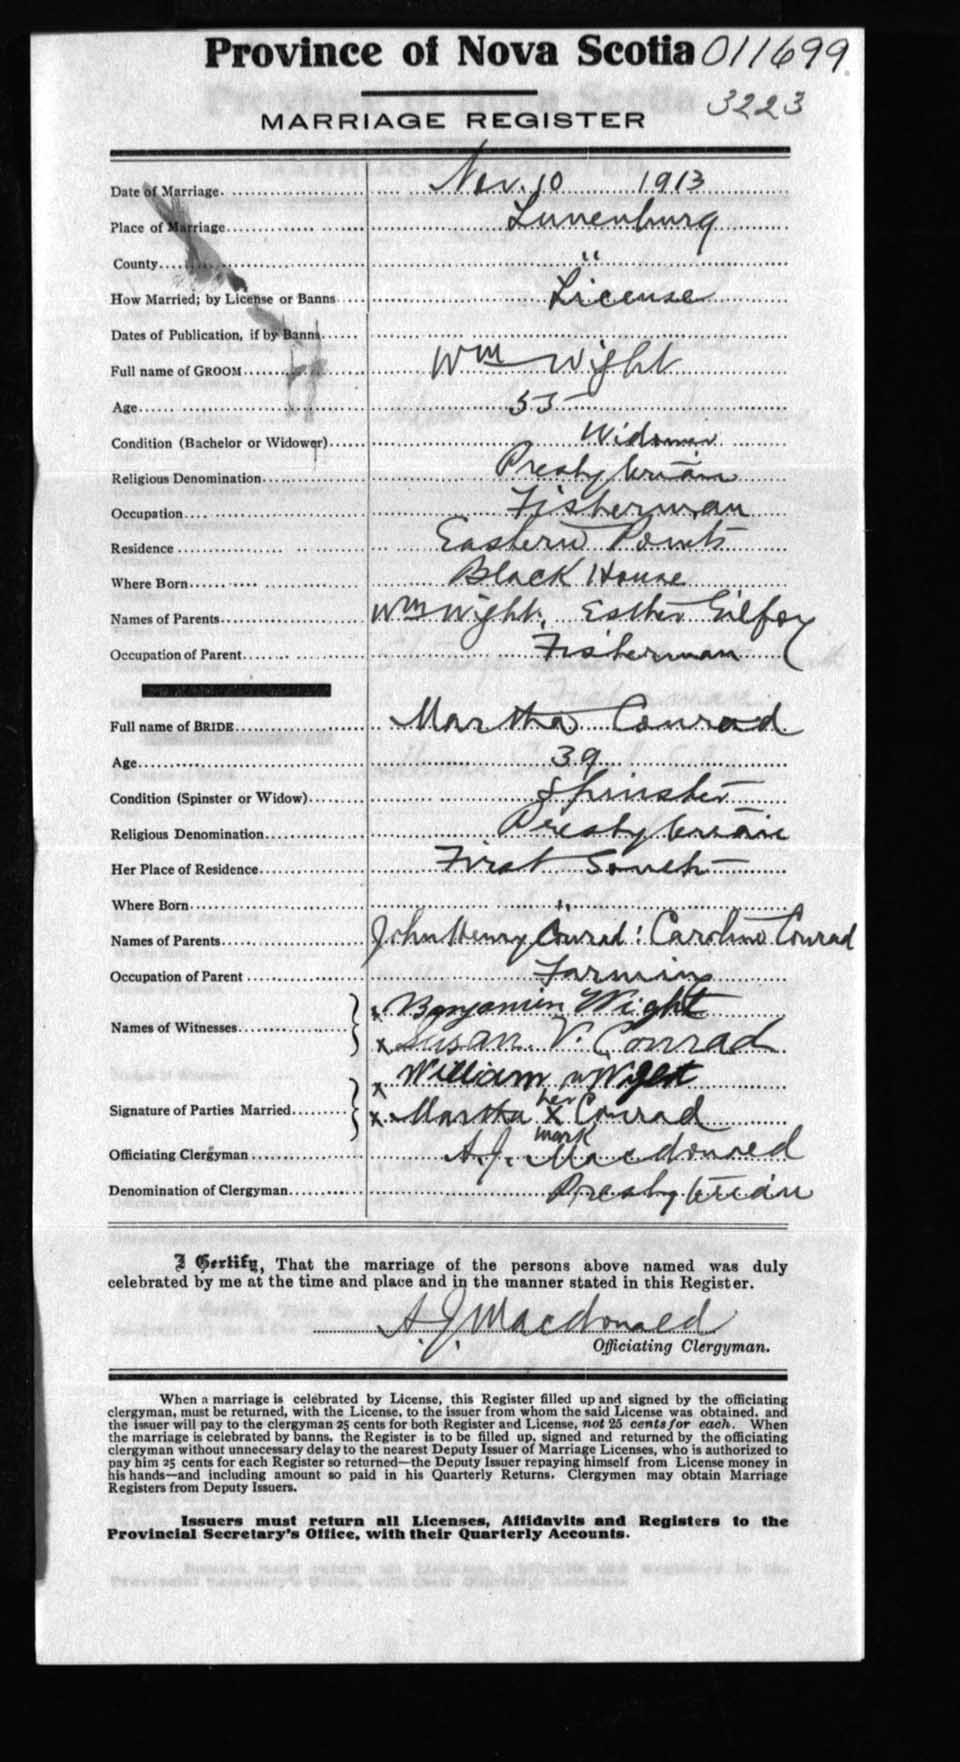 Province of Nova Scotia 011699
3223
MARRIAGE REGISTER
Date of Marriage Nov. 10 1913
Place of Marriage Lunenburg
County "
How Married; by License or Banns License
Dates of Publication, if by Banns
Full name of GROOM Wm Wight
Age 55
Condition (Bachelor or Widower) Widower
Religious Denomination Presbyterian
Occupation Fisherman
Residence Eastern Points
Where Born Black House
Names of Parents Wm Wight, Esther Gilfoy
Occupation of Parent Fisherman
Full name of BRIDE Martha Conrad
Age 39
Condition (Spinster or Widow) Spinster
Religious Denomination Presbyterian
Her Place of Residence First South
Where Born "
Names of Parents John Henry Conrad : Caroline Conrad
Occupation of Parent Farming
Names of Witnesses x Benjamin Wight
x Susan. V. Conrad
Signature of Parties Married x William Wight
x Martha her X mark Conrad
Officiating Clergyman A. J. Macdonald
Denomination of Clergyman Presbyterian
I Certify, That the marriage of the persons above named was duly
celebrated by me at the time and place and in the manner stated in this Register.
A. J. Macdonald
Officiating Clergyman.
When a marriage is celebrated by License, this Register filled up and signed by the officiating
clergyman, must be returned, with the License, to the issuer from whom the said License was obtained, and
the issuer will pay to the clergyman 25 cents for both Register and License, not 25 cents for each. When
the marriage is celebrated by banns, the Register is to be filled up, signed and returned by the officiating
clergyman without unnecessary delay to the nearest Deputy Issuer of Marriage Licenses, who is authorized to
pay him 25 cents for each Register so returned—the Deputy Issuer repaying himself from License money in
his hands—and including amount so paid in his Quarterly Returns. Clergymen may obtain Marriage
Registers from Deputy Issuers.
Issuers must return all Licenses, Affidavits and Registers to the
Provincial Secretary's Office, with their Quarterly Accounts.